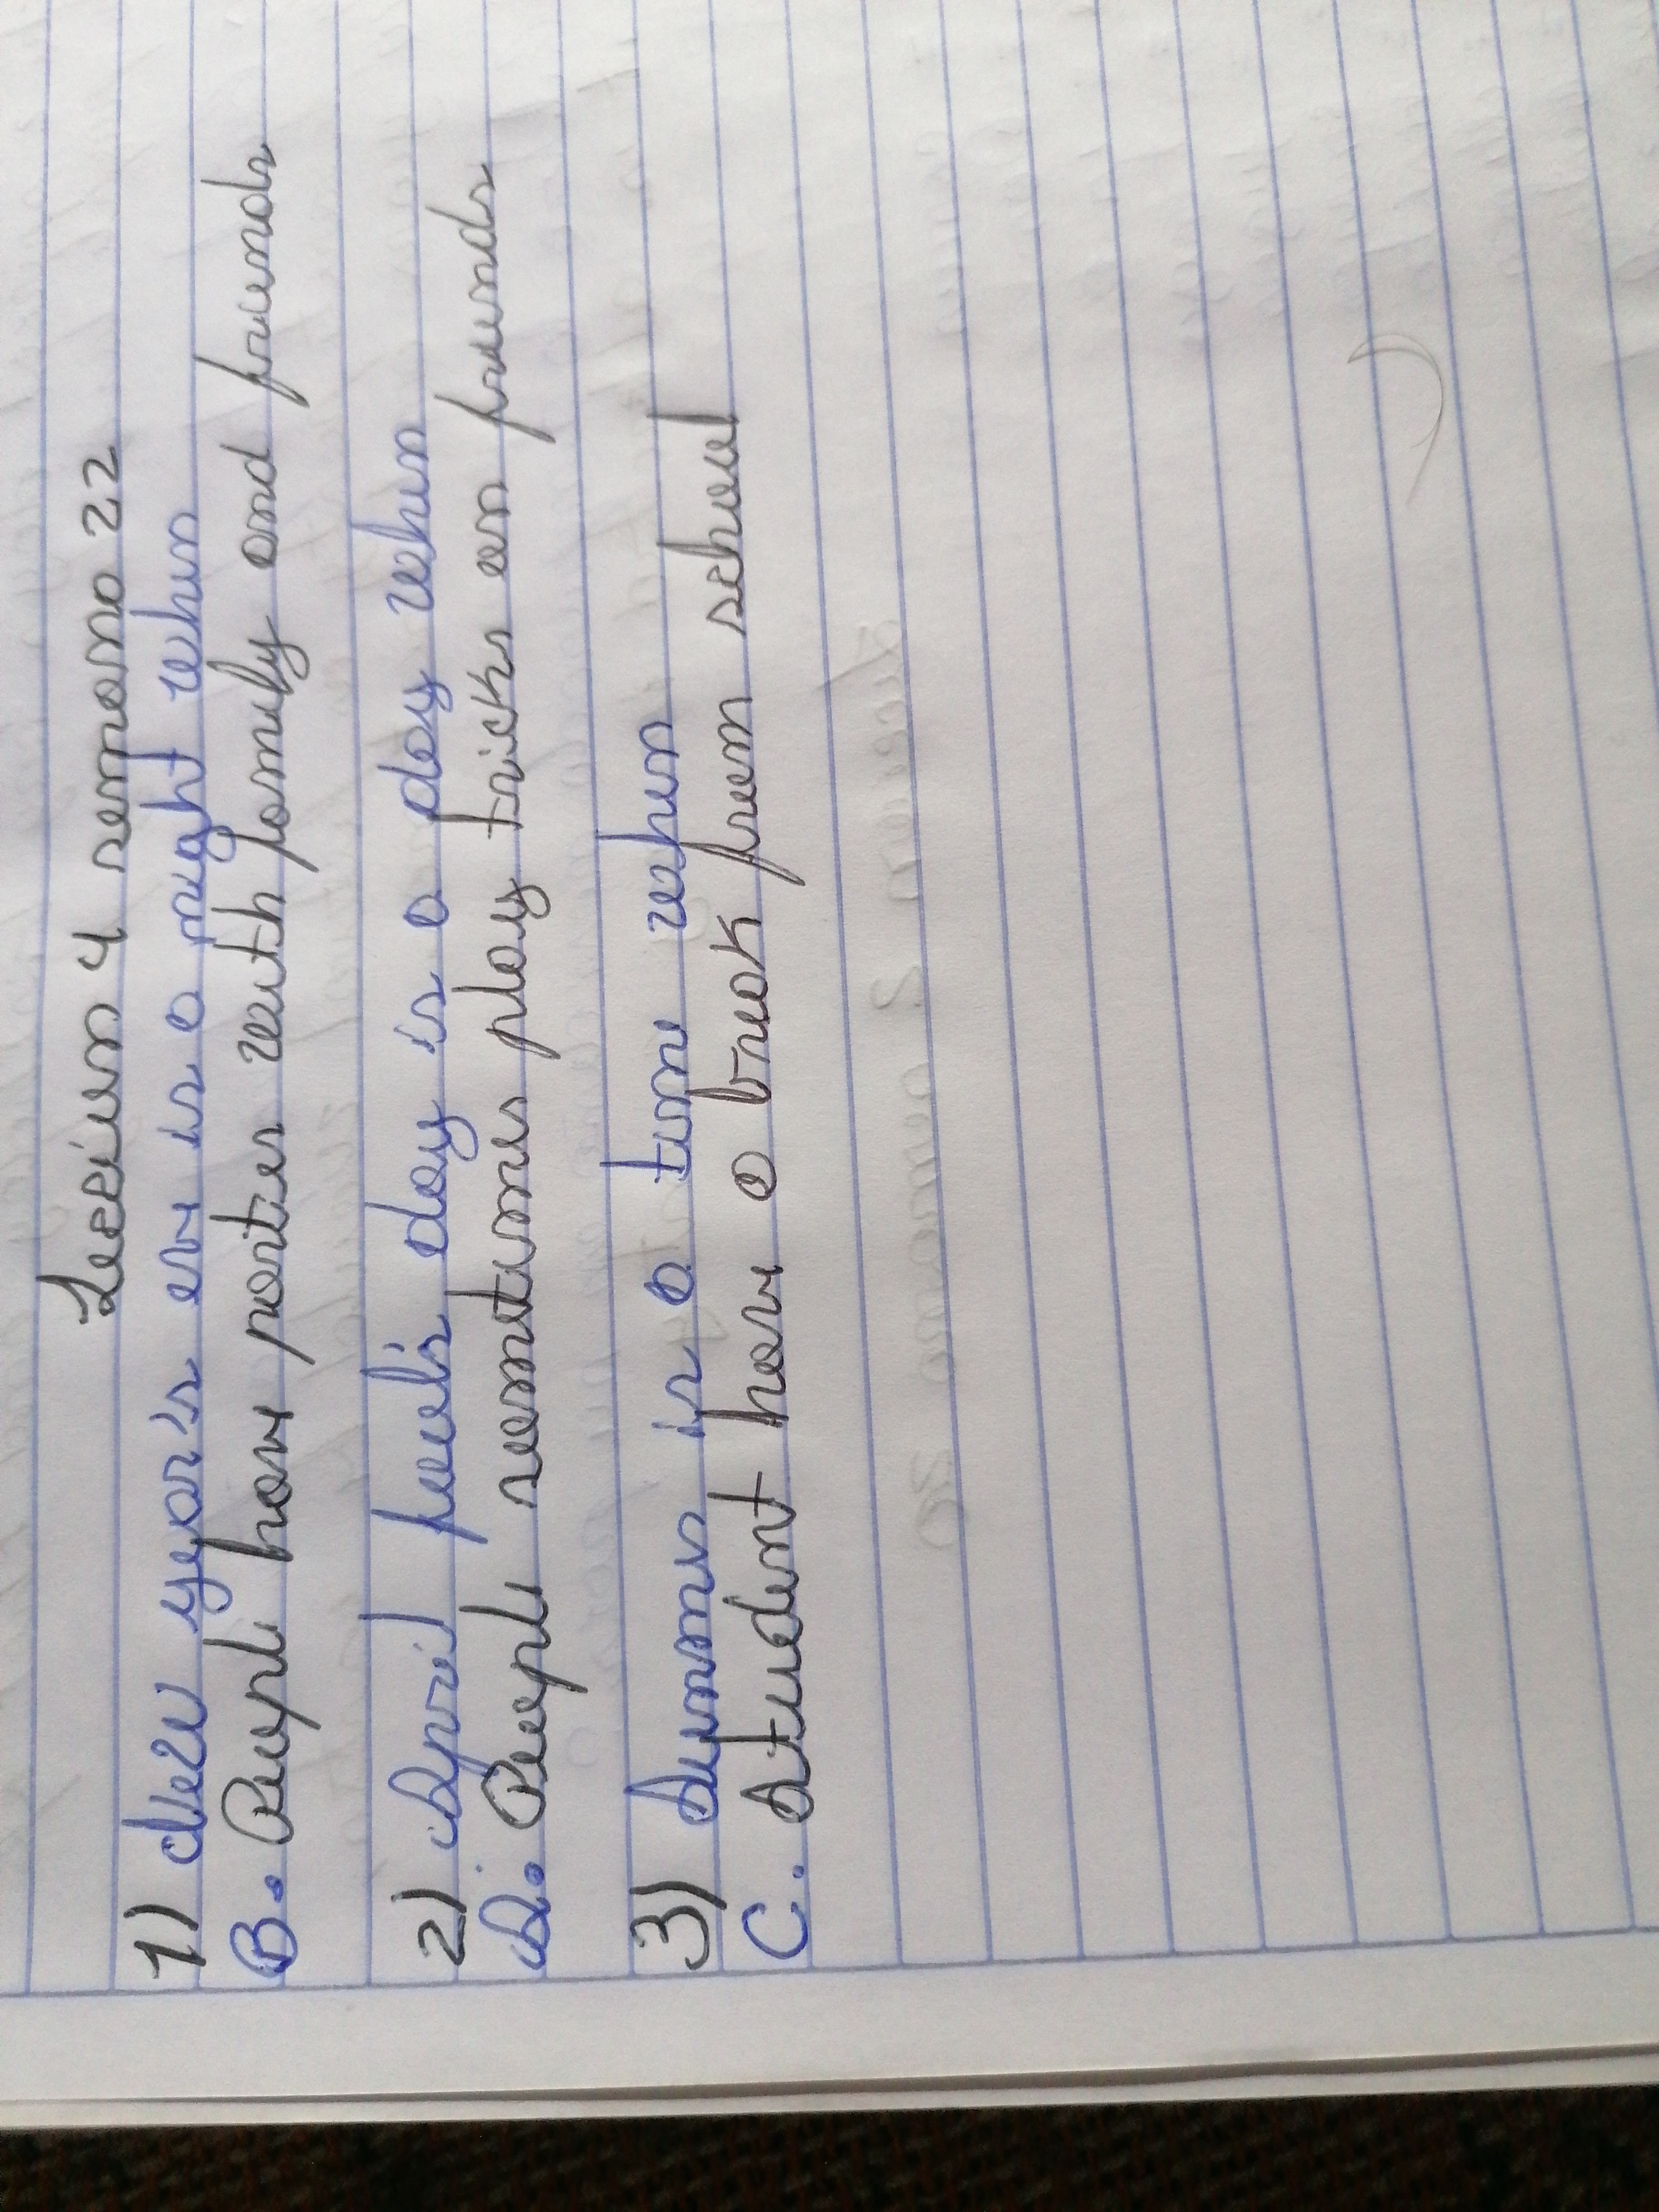 Leccion 4 semana 22
1) New year's eve is a night when
B. People have parties with family and friends
2) April fool's day is a day when
A. People sometimes play tricks on friends
3) Summer is a time when
C. Student have a break from school